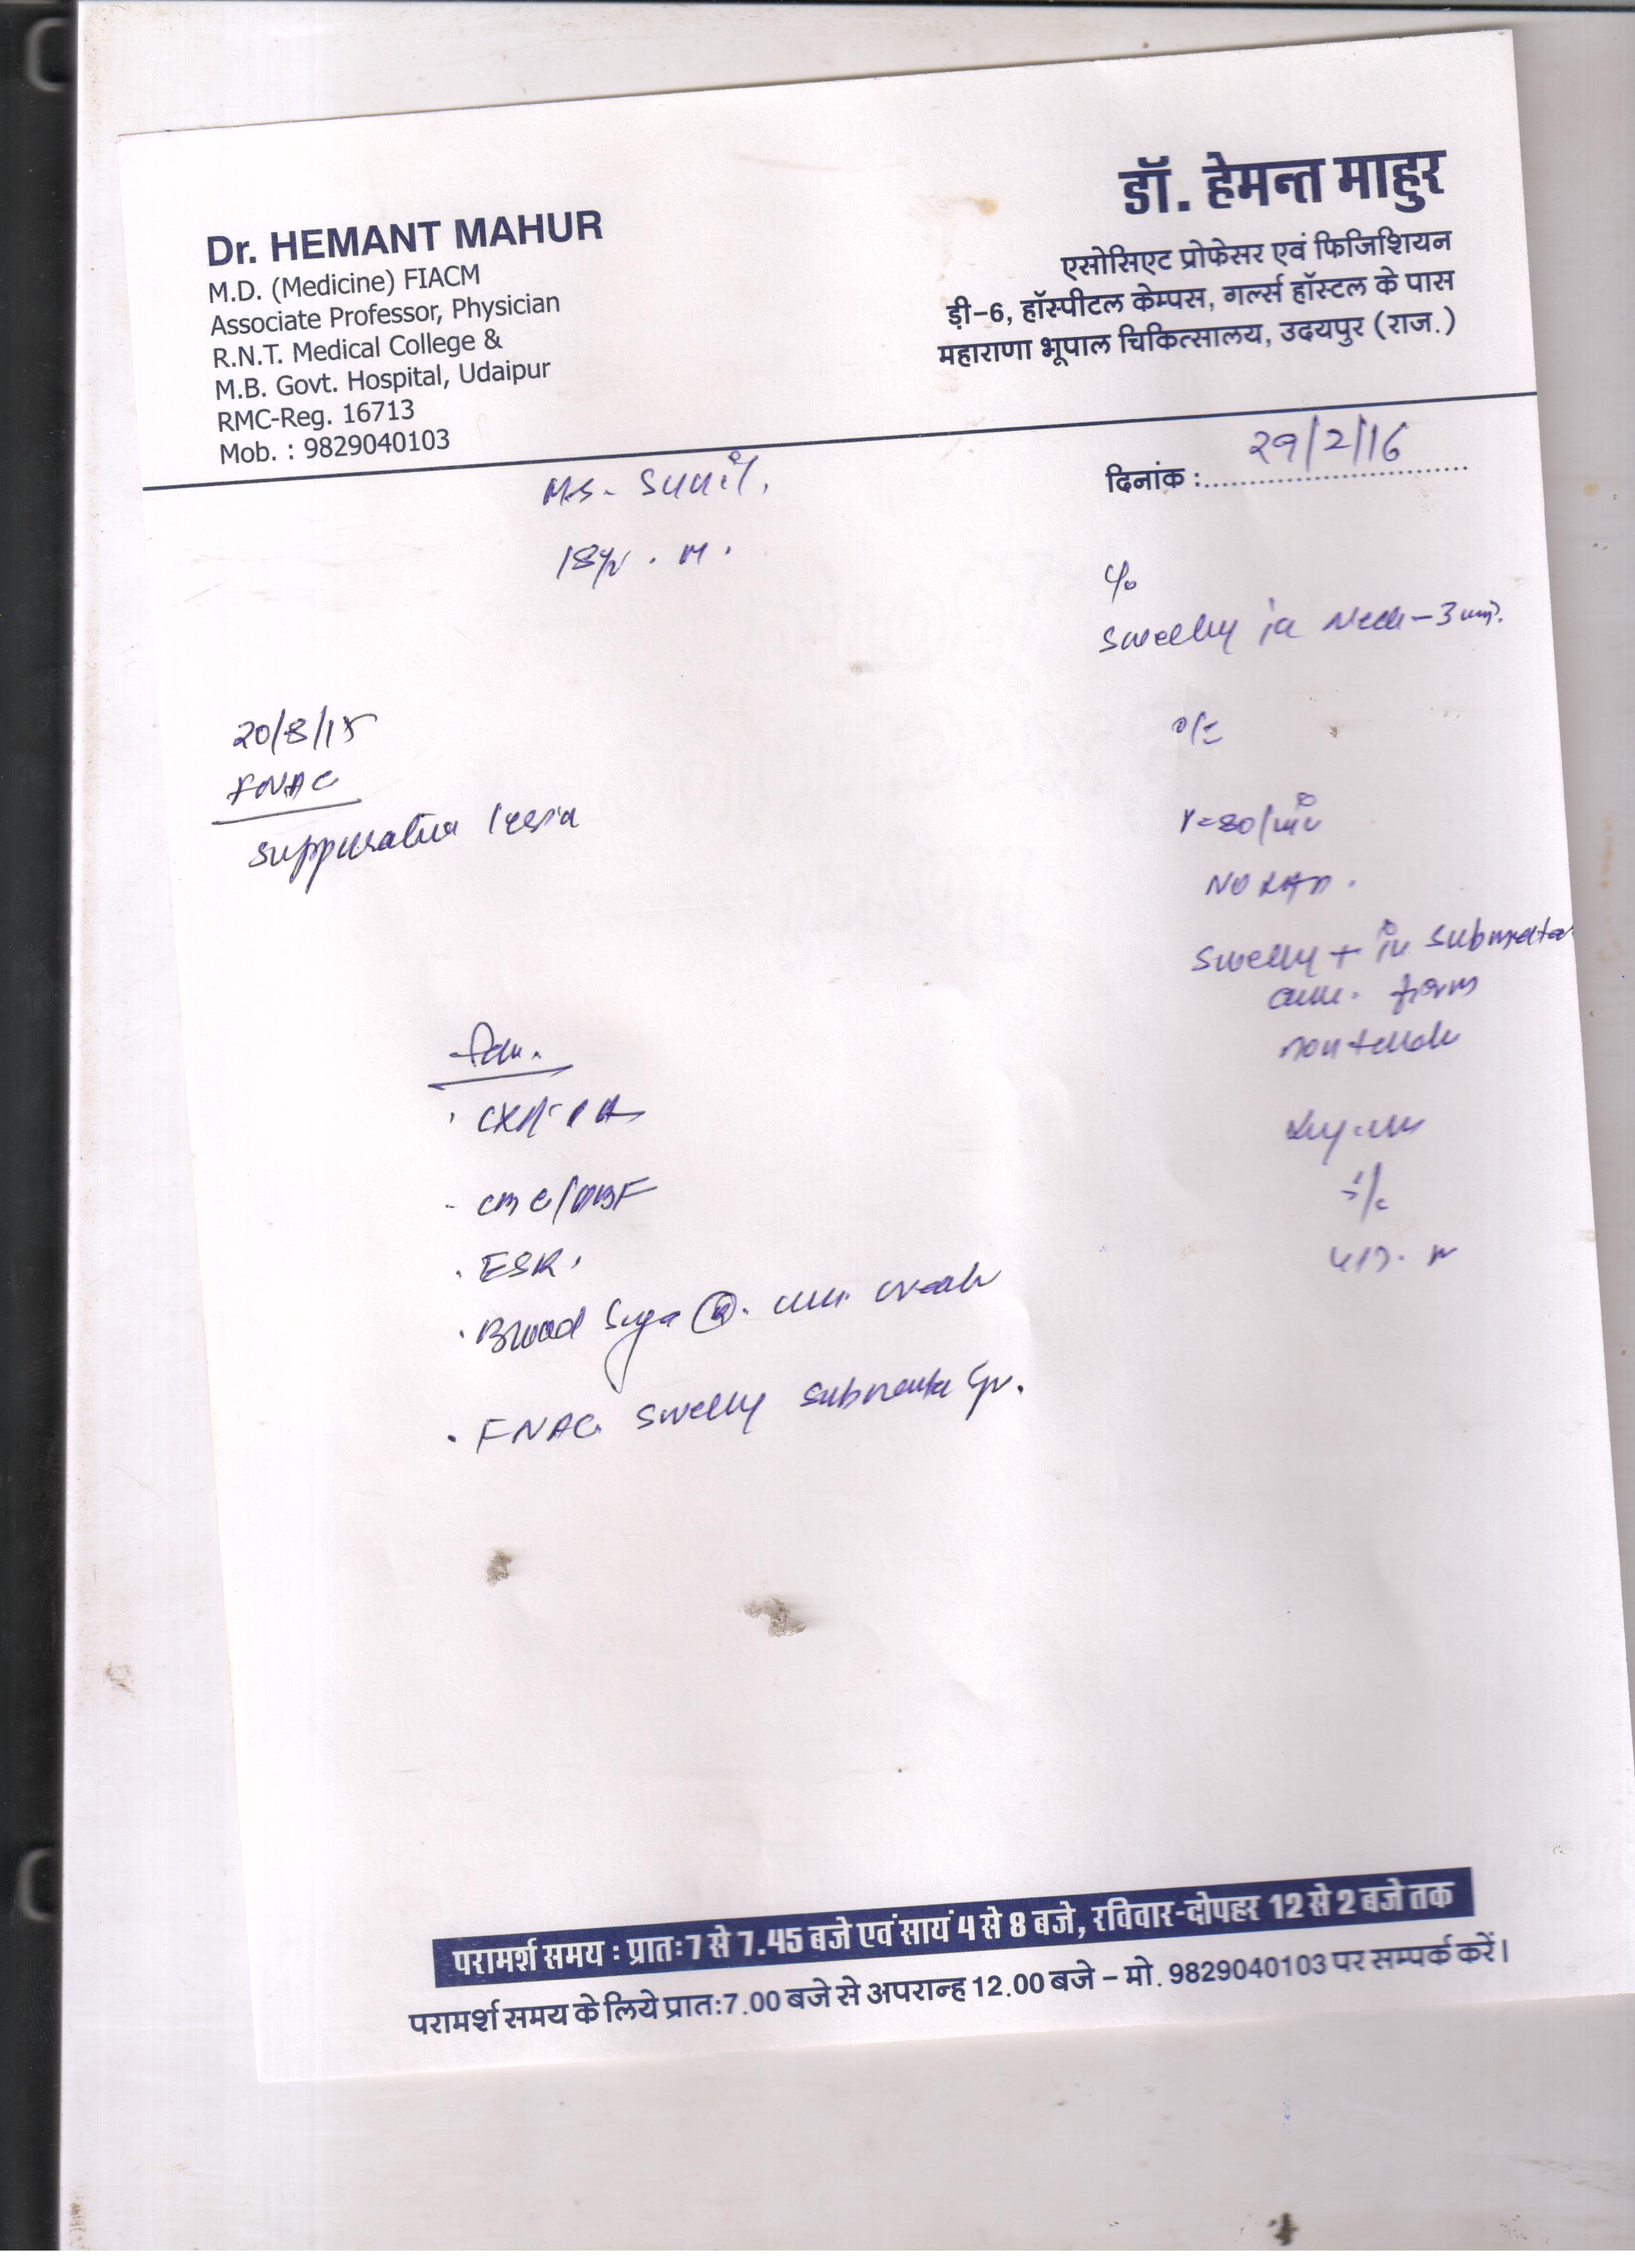 Dr. HEMANT MAHUR
M.D. (Medicine) FIACM
Associate Professor, Physician
R.N.T. Medical College &
M.B. Govt. Hospital, Udaipur
RMC-Reg. 16713
Mob. : 9829040103
डॉ. हेमन्त माहुर
एसोसिएट प्रोफेसर एवं फिजिशियन
ड़ी-6, हॉस्पीटल केम्पस, गर्ल्स हॉस्टल के पास
महाराणा भूपाल चिकित्सालय, उदयपुर (राज.)
दिनांक : 29/2/16
Sunil.
18yr. M.
C/o
Swelling in Neck - 3
20/8/15
FNAC
Suppurative lesion
O/E
P=80/min
NO LAP.
Swelling + in submental
area. firm
non tender
Adv.
CXR-PA
CBC/PBF
ESR.
Blood Sugar (R).
FNAC Swelling submental
परामर्श समय : प्रातः7 से 7.45 बजे एवं सायं 4 से 8 बजे, रविवार-दोपहर 12 से 2 बजे तक
परामर्श समय के लिये प्रातः7.00 बजे से अपरान्ह 12.00 बजे – मो. 9829040103 पर सम्पर्क करें।